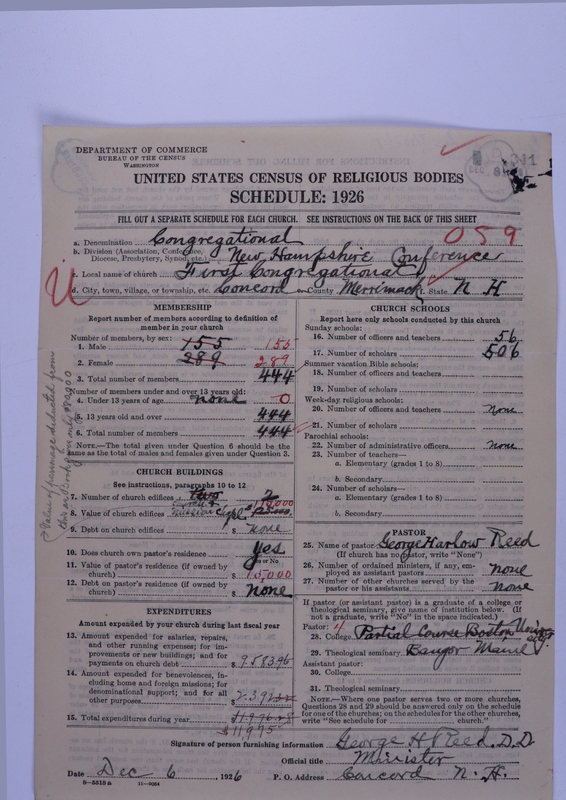 DEPARTMENT OF COMMERCE
BUREAU OF THE CENSUS
WASHINGTON
UNITED STATES CENSUS OF RELIGIOUS BODIES
SCHEDULE: 1926
FILL OUT A SEPARATE SCHEDULE FOR EACH CHURCH. SEE INSTRUCTIONS ON THE BACK OF THIS SHEET
a. Denomination Congregational 059
b. Division (Association, Conference, Diocese, Presbytery, Synod, etc.) New Hampshire Conference
c. Local name of church First Congregational
d. City, town, village, or township, etc. Concord e. County Merrimack f. State N H
U
MEMBERSHIP
Report number of members according to definition of member in your church
Number of members, by sex:
1. Male 155 155
2. Female 289 289
3. Total number of members 444
Number of members under and over 13 years old:
4. Under 13 years of age none 0
5. 13 years old and over 444
6. Total number of members 444
NOTE.—The total given under Question 6 should be the same as the total of males and females given under Question 3.
CHURCH BUILDINGS
See instructions, paragraphs 10 to 12
7. Number of church edifices two 2
8. Value of church edifices $
9. Debt on church edifices $ none
10. Does church own pastor's residence yes
Yes or No
11. Value of pastor's residence (if owned by church) $ 15,000
12. Debt on pastor's residence (if owned by church) $ none
EXPENDITURES
Amount expended by your church during last fiscal year
13. Amount expended for salaries, repairs, and other running expenses; for improvements or new buildings; and for payments on church debt $ 9,583.96
14. Amount expended for benevolence, including home and foreign missions; for denominational support; and for all other purposes $
15. Total expenditures during year
$11,975
CHURCH SCHOOLS
Report here only schools conducted by this church
Sunday schools:
16. Number of officers and teachers 56
17. Number of scholars 506
Summer vacation Bible schools:
18. Number of officers and teachers
19. Number of scholars
Week-day religious schools:
20. Number of officers and teachers None
21. Number of scholars
Parochial schools:
22. Number of administrative officers none
23. Number of teachers—
a. Elementary (grades 1 to 8)
b. Secondary
24. Number of scholars—
a. Elementary (grades 1 to 8)
b. Secondary
PASTOR
25. Name of pastor George Harlow Reed
(If church has no pastor, write "None")
26. Number of ordained ministers, if any, employed as assistant pastors none
27. Number of other churches served by the pastor or his assistants none
If pastor (or assistant pastor) is a graduate of a college or theological seminary, give name of institution below. (If not a graduate, write "No" in the space indicated)
Pastor:
28. College Partial Course Boston University
29. Theological seminary Bangor Maine
Assistant pastor:
30. College
31. Theological seminary
NOTE.—Where one pastor serves two or more churches, Questions 28 and 29 should be answered only on the schedule for one of the churches; on the schedules for the other churches, write "See schedule for church."
Signature of person furnishing information George H Reed, D.D
Official title Minister
Date Dec 6, 1926 P. O. Address Concord N. H.
8—5518a 11—9084